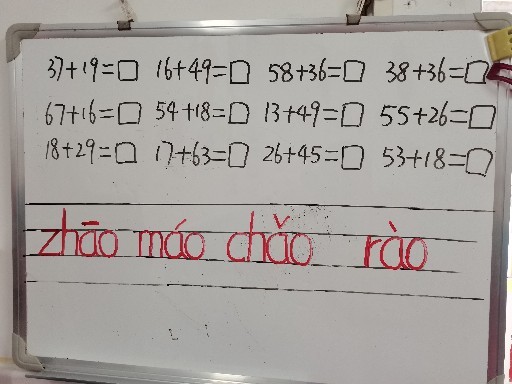 37+19=□ 16+49=□ 58+36=□ 38+36=□
67+16=□ 54+18=□ 13+49=□ 55+26=□
18+29=□ 17+63=□ 26+45=□ 53+18=□
zhāo máo chǎo rào